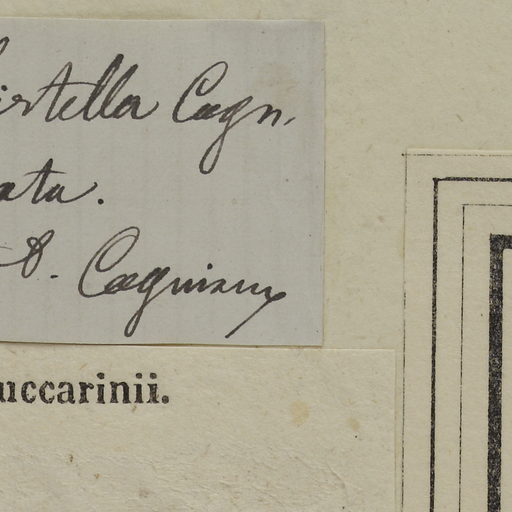 irtella Cogn.
ata.
D. Cogniaux
uccarinii.